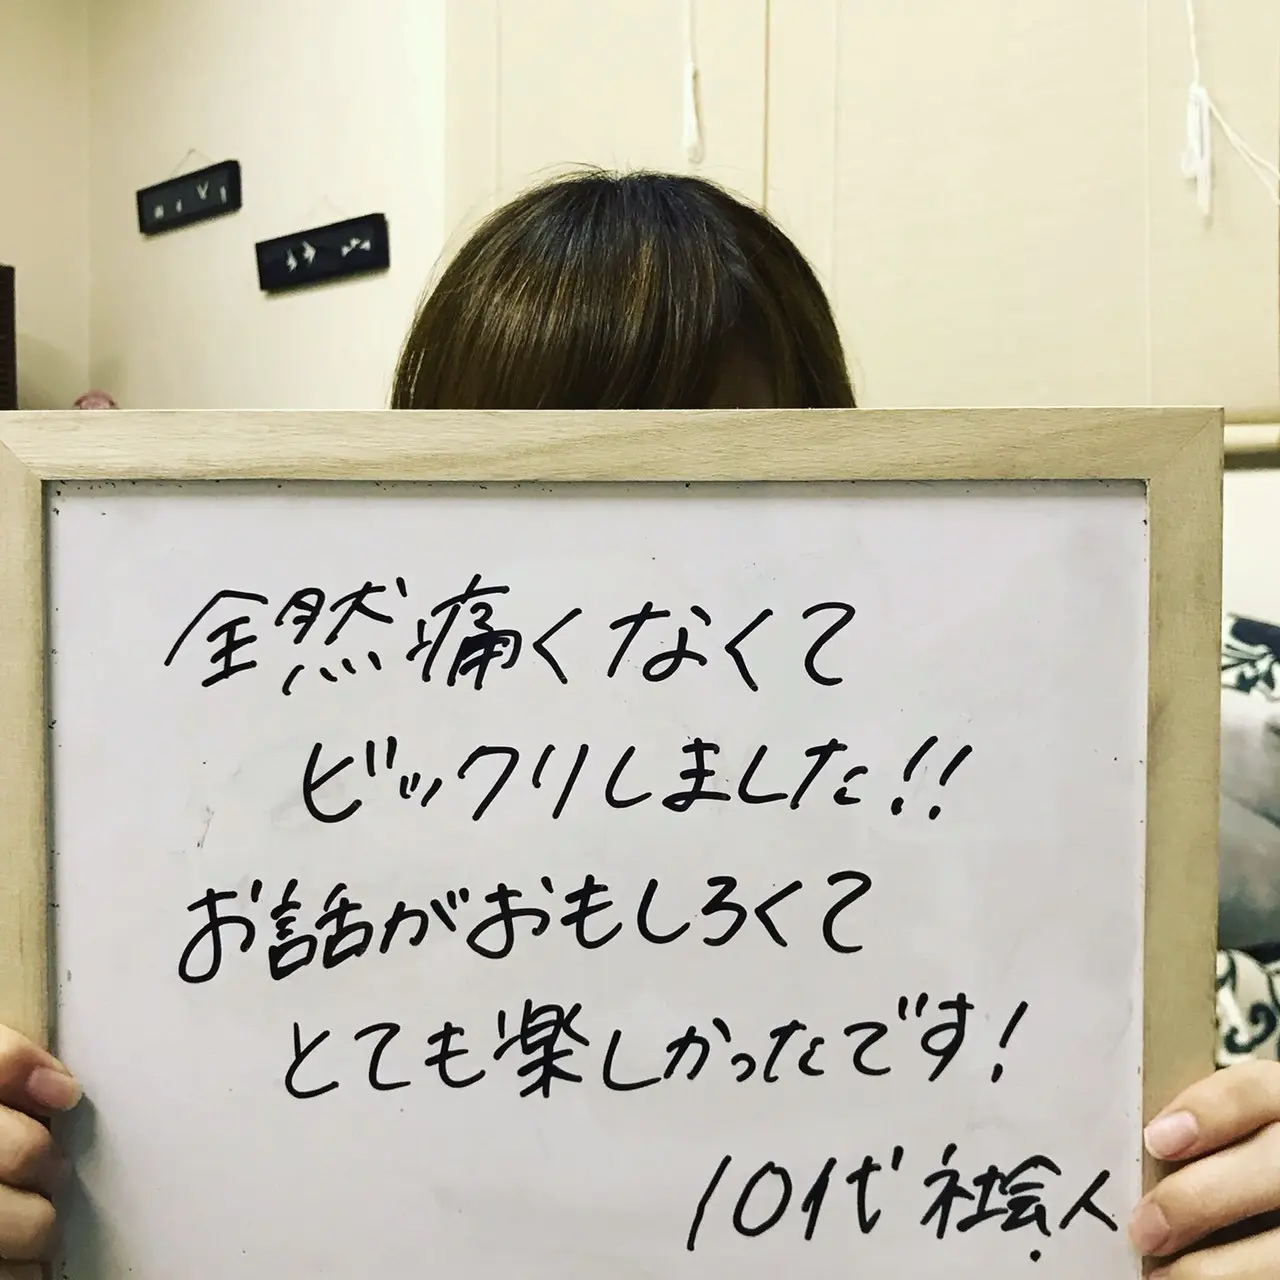 全然痛くなくて
ビックリしました!!
お話がおもしろくて
とても楽しかったです!
10代 社会人